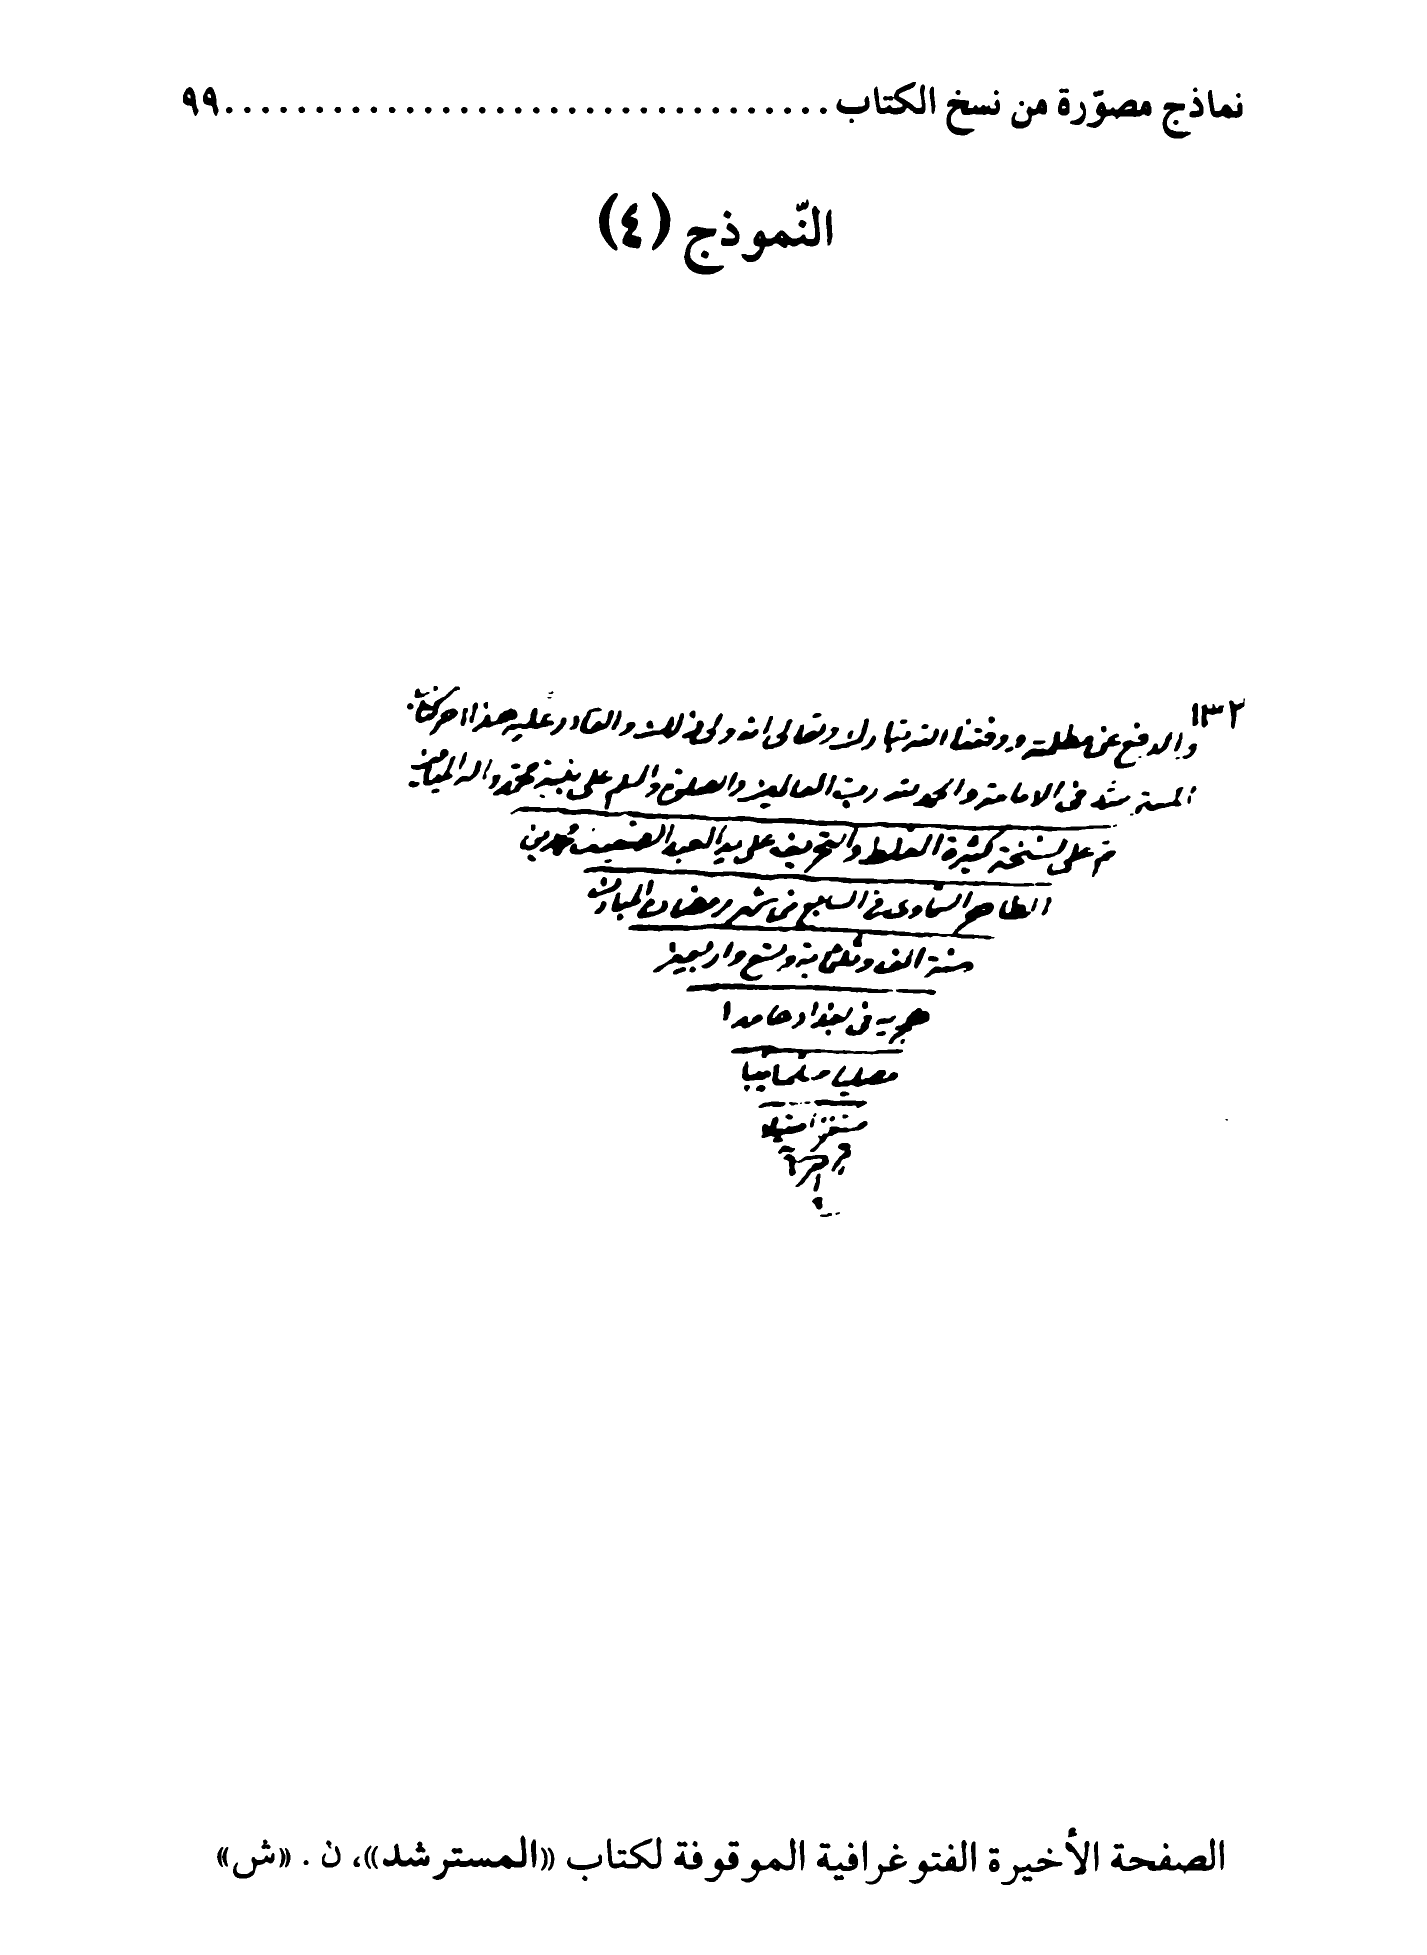 نماذج مصوّرة من نسخ الكتاب................................. ٩٩
النّموذج (٤)
١٣٢
والدفع عن مظلمته ووفقنا الله تبارك وتعالى انه ولى ذلك والقادر عليه هذا اخر كتاب
المسترشد فى الامامة والحمد لله رب العالمين والصلوة والسلم على نبيه محمد واله الميامين
تم على نسخة كثيرة الغلط والتحريف على يد العبد الضعيف محمد بن
الطاهر السماوى فى السابع من شهر رمضان المبارك
سنة الف وثلثمائة وتسع واربعين
هجرية فى بغداد حامدا
مصليا مسلما
مستغفرا
الصفحة الأخيرة الفتوغرافية الموقوفة لكتاب «المسترشد»، ن . «ش»